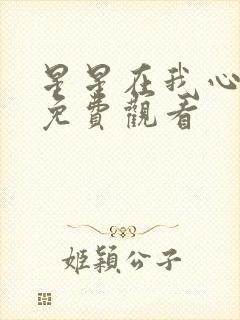 星星在我心
免費觀看
姬穎公子